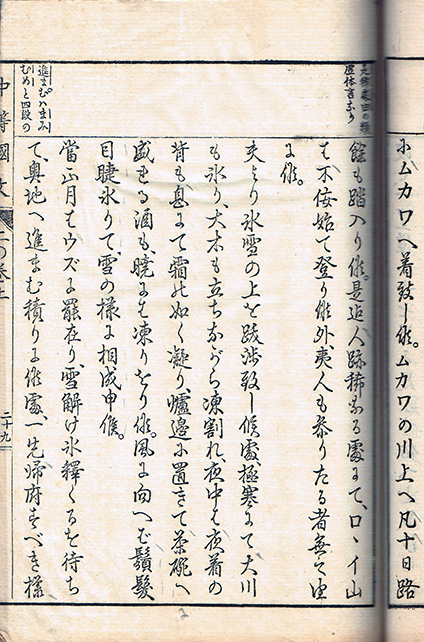 にムカワへ着致し候。ムカワの川上へ凡十日路
餘も踏入り候。是迄人跡稀なる處にて、ロヽイ山
は不侫始て登り候外、夷人も參りたる者無之由
に候。
夫より氷雪の上を跋渉致し候處、極寒にて大川
も氷り、大木も立ちながら凍割れ、夜中は夜着の
背も息にて霜の如く凝り、爐邊に置きて茶碗へ
盛れる酒も、曉には凍りをり候。風に向へば鬚髮
目睫氷りて雪の樣に相成申候。
當正月はウズに罷在り、雪解け氷釋くるを待ち
て、奧地へ進まむ積りに候處、一先歸府すべき樣
進まむハまみ
むめト四段の
中等國文 二の卷上
二十九